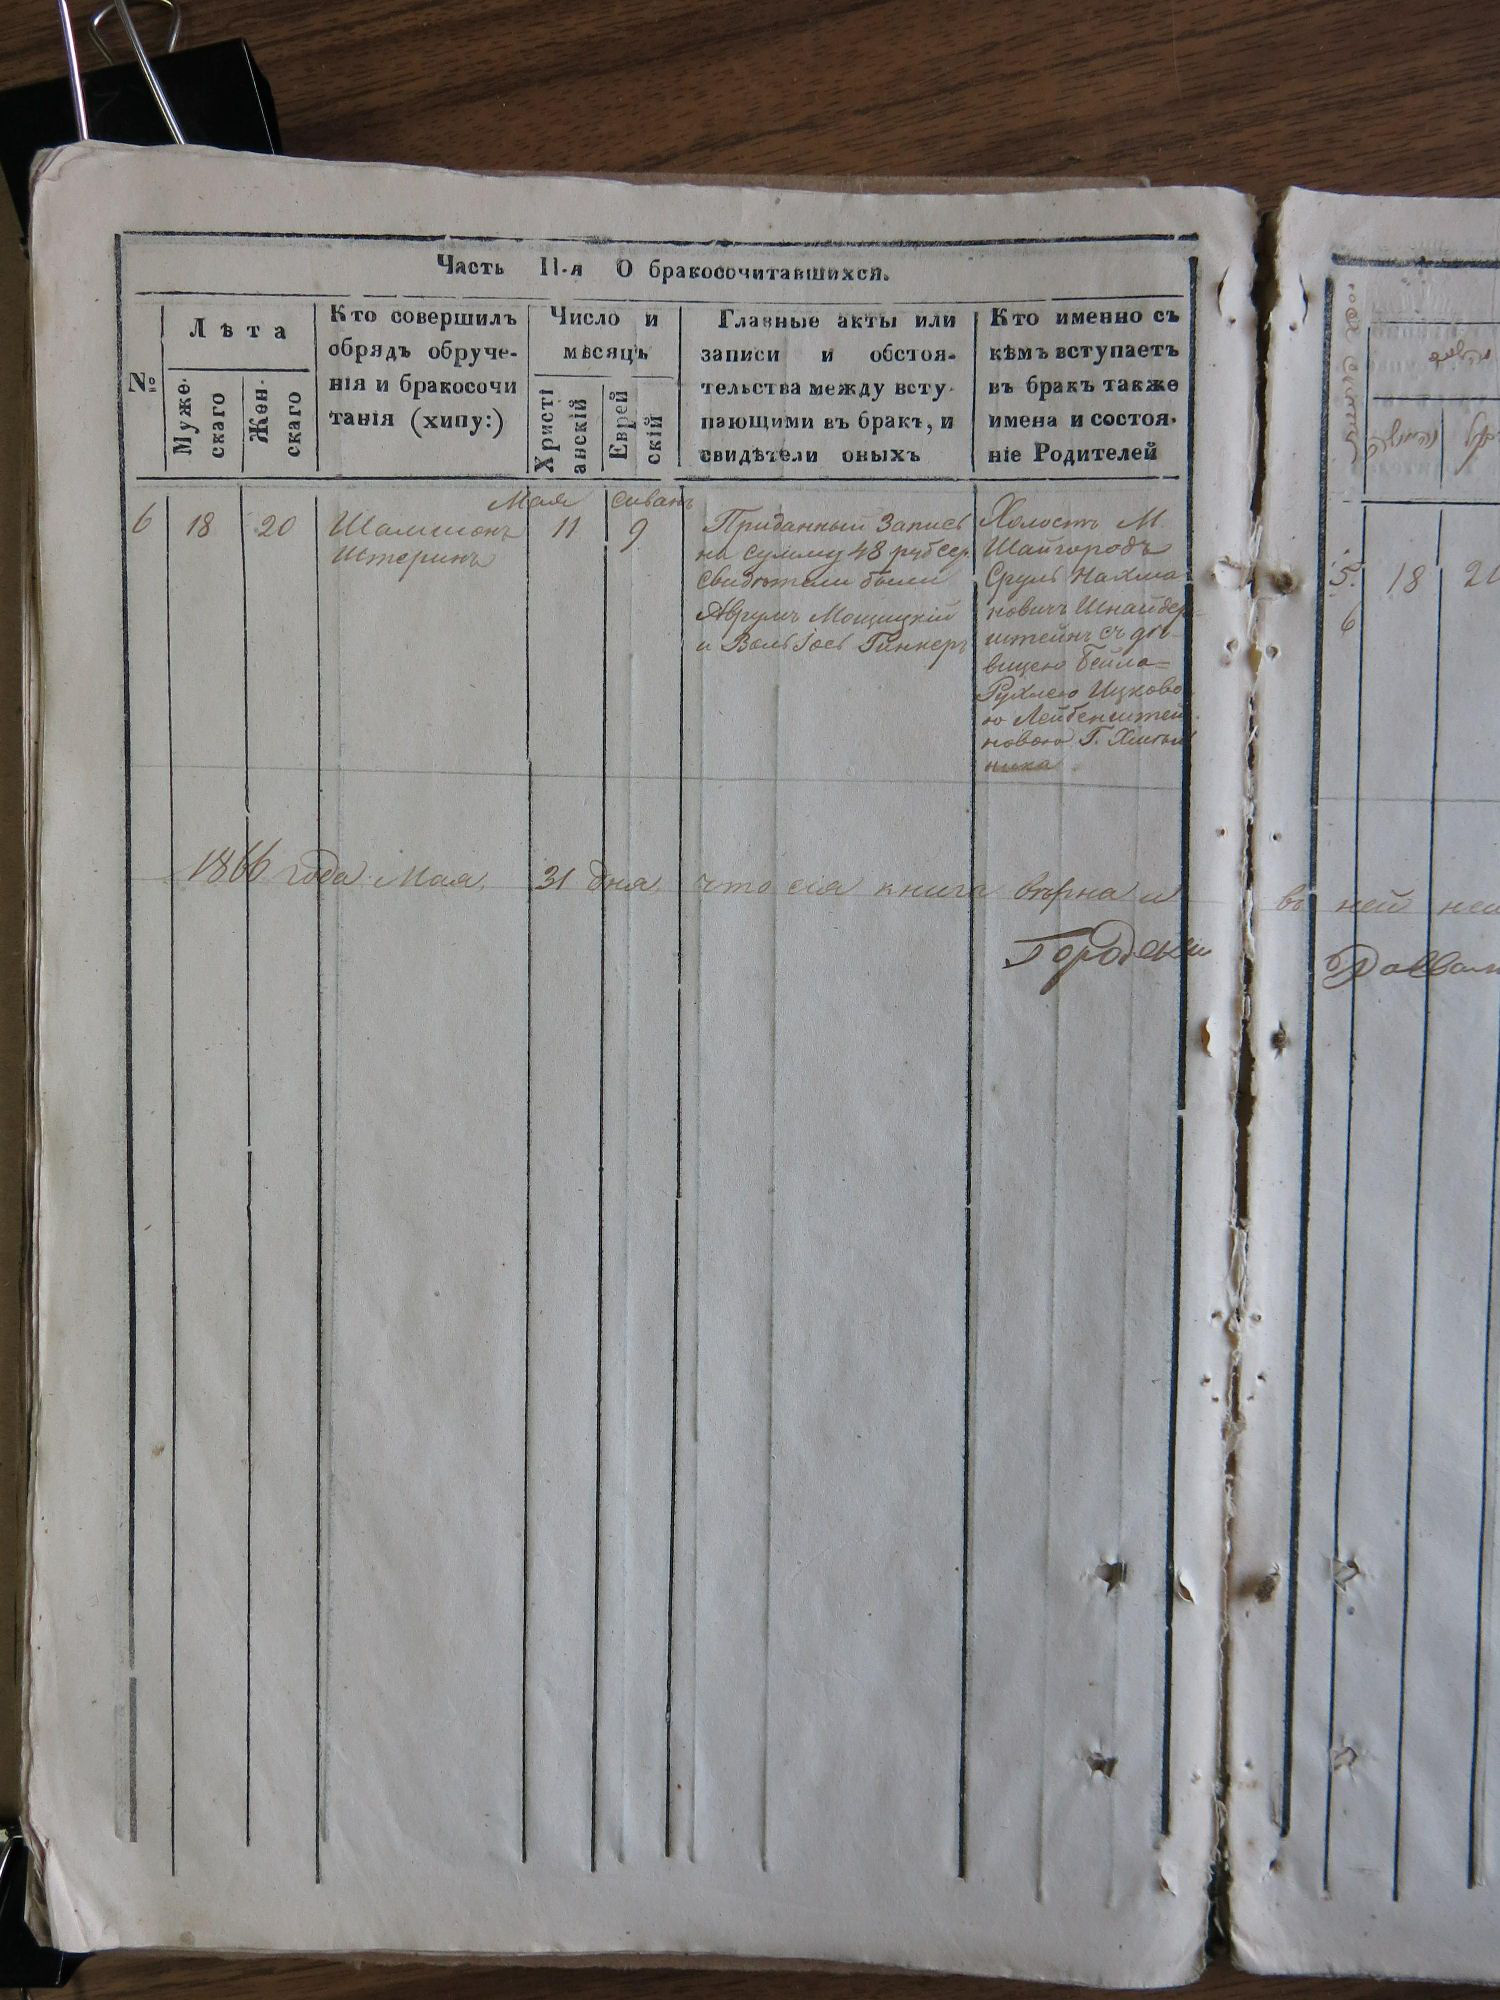 Часть II-я О бракосочитавшихся.
№
Лѣта
Муже-
скаго
Жен-
скаго
Кто совершилъ
обрядъ обруче-
нія и бракосочи
танія (хипу:)
Число и
мѣсяцъ
Христі
анскій
Еврей
скій
Главные акты или
записи и обстоя-
тельства между всту-
пающими въ бракъ, и
свидѣтели оныхъ
Кто именно съ
кѣмъ вступаетъ
въ бракъ также
имена и состоя-
ніе Родителей
Мая сиванъ
6 18 20
Шамшонъ
Штеринъ
11 9
Приданный Запись
на сумму 48 руб сер.
свидѣтели были
Аврумъ Мощицкій
и Вольѳось Гинкеръ
Холостъ М.
Шайгородъ
Сруль Нахма
новичъ Шнайдер-
штейнъ съ дѣ-
вицею Бейла=
Рухлею Ицково
ю Лейбенштей-
новою Г. Хмель
ника
5. 18
6
1866 года Мая 31 дня что сія книга вѣрна и въ ней